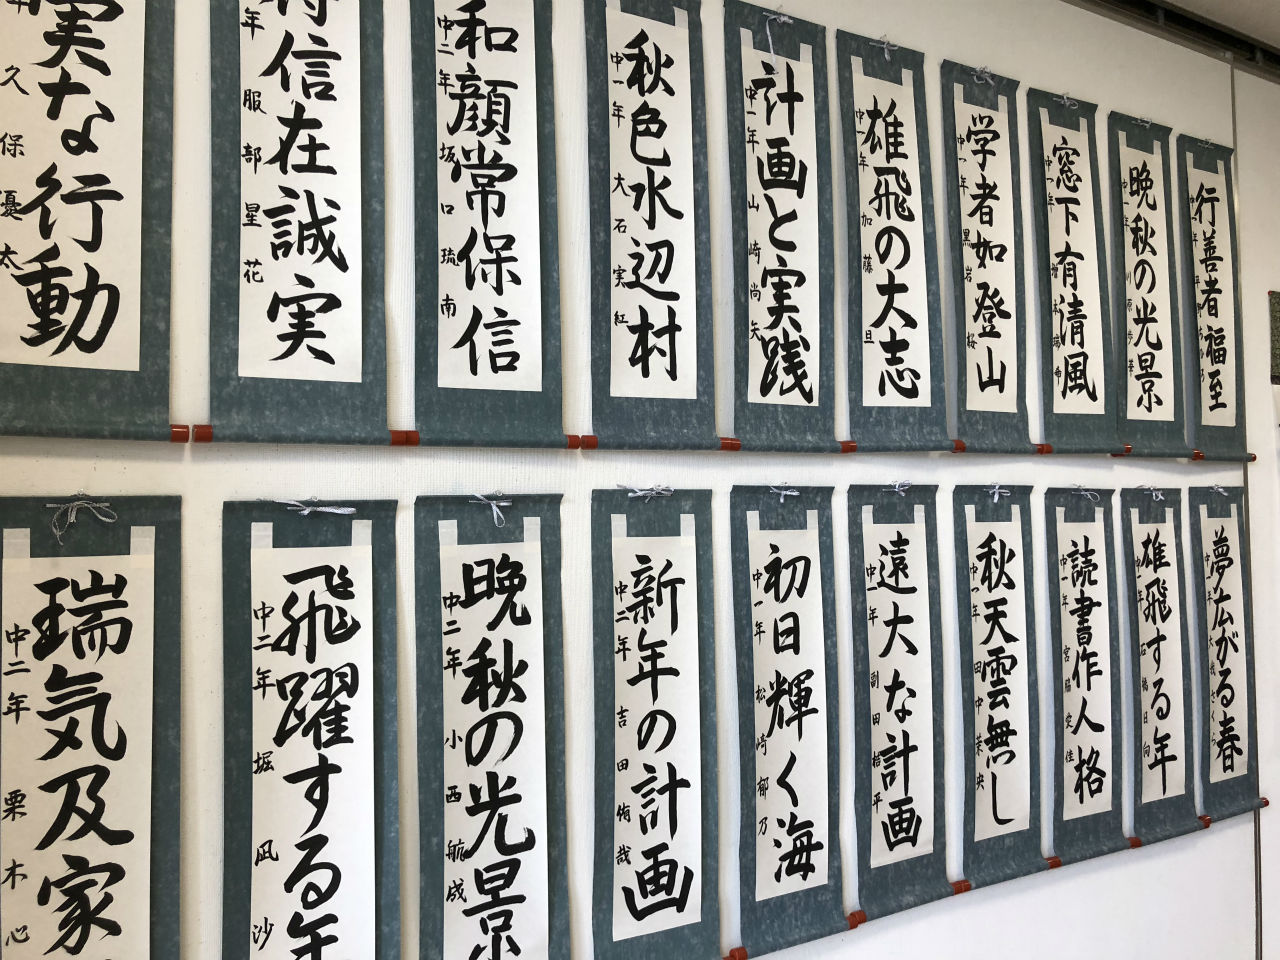 実な行動
久保優太
信在誠実
年 服部星花
和顔常保信
中二年 坂口琉南
秋色水辺村
中一年 大石実紅
計画と実践
中一年 山崎尚矢
雄飛の大志
中一年 加藤旦
学者如登山
中一年 黒岩桜
窓下有清風
中一年
晩秋の光景
中一年
行善者福至
中一年
瑞気及家
中二年 栗木心
飛躍する年
中二年 堀凪沙
晩秋の光景
中二年 小西航成
新年の計画
中二年 吉田侑哉
初日輝く海
中一年 松崎郁乃
遠大な計画
中一年 副田桔平
秋天雲無し
中一年 田中菜央
読書作人格
中一年 宮脇
雄飛する年
中一年 石橋日向
夢広がる春
中一年